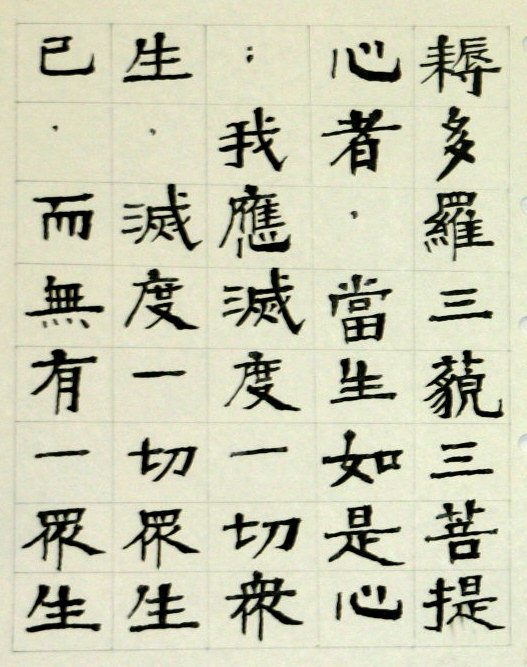 耨多羅三藐三菩提
心者，當生如是心
：我應滅度一切衆
生，滅度一切眾生
已，而無有一眾生